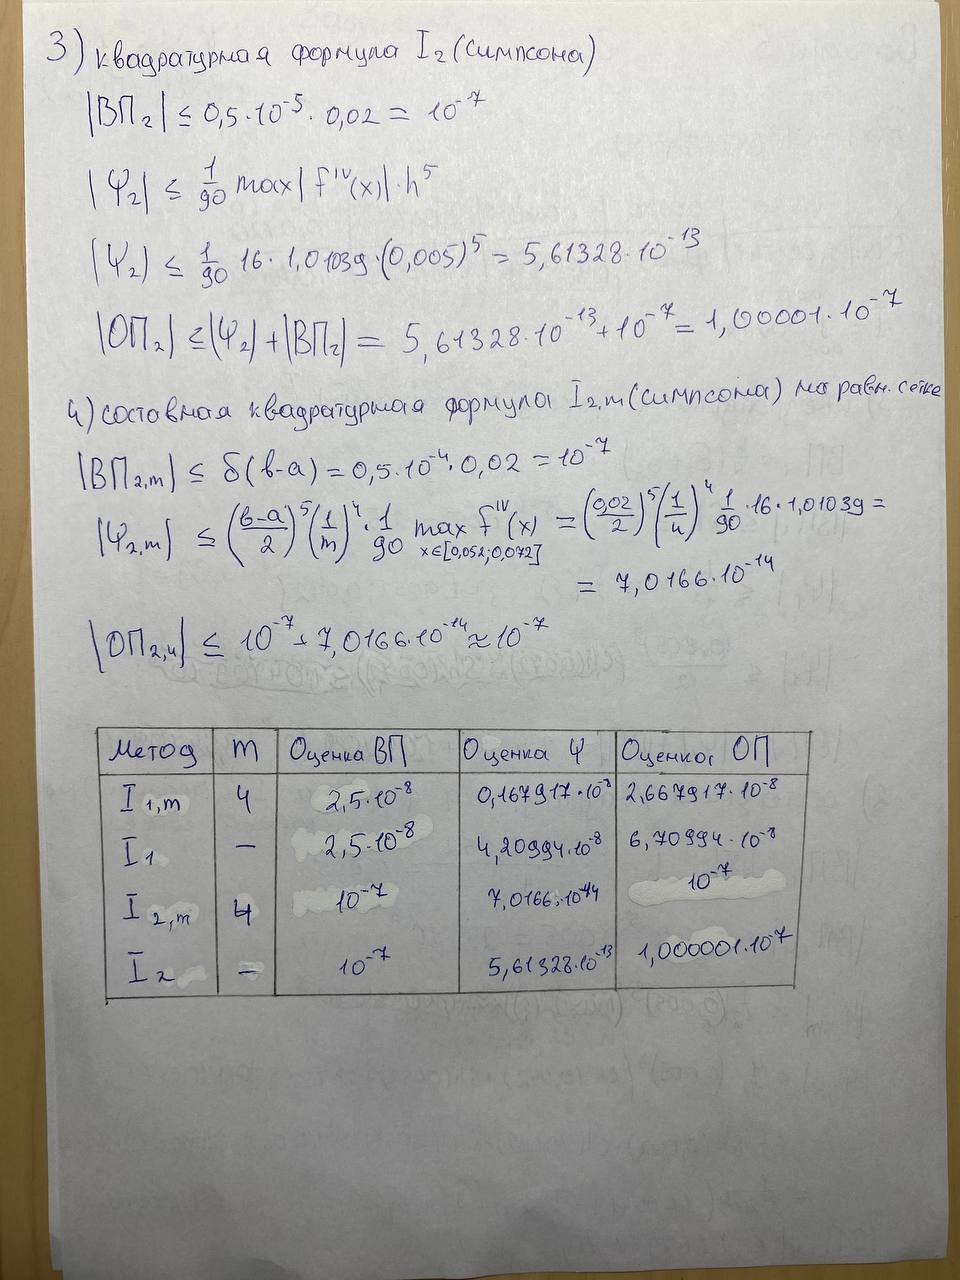 3) квадратурная формула I₂ (симпсона)
|ВП₂| ≤ 0,5·10⁻⁵·0,02 = 10⁻⁷
|Ψ₂| ≤ 1/90 max|fᴵⱽ(x)|·h⁵
|Ψ₂| ≤ 1/90 16·1,01039·(0,005)⁵ = 5,61328·10⁻¹³
|ОП₂| ≤ |Ψ₂| + |ВП₂| = 5,61328·10⁻¹³ + 10⁻⁷ = 1,00001·10⁻⁷
4) составная квадратурная формула I₂,ₘ (симпсона) на равн. сетке
|ВП₂,ₘ| ≤ δ(b-a) = 0,5·10⁻⁴·0,02 = 10⁻⁷
|Ψ₂,ₘ| ≤ ((b-a)/2)⁵ (1/m)⁴·1/90 max fᴵⱽ(x) = (0,02/2)⁵ (1/4)⁴ 1/90·16·1,01039 =
x∈[0,052;0,072]
= 7,0166·10⁻¹⁴
|ОП₂,₄| ≤ 10⁻⁷ + 7,0166·10⁻¹⁴ ≈ 10⁻⁷
Метод m Оценка ВП Оценка Ψ Оценка ОП
I₁,ₘ 4 2,5·10⁻⁸ 0,167917·10⁻⁸ 2,667917·10⁻⁸
I₁ — 2,5·10⁻⁸ 4,20994·10⁻⁸ 6,70994·10⁻⁸
I₂,ₘ 4 10⁻⁷ 7,0166·10⁻¹⁴ 10⁻⁷
I₂ — 10⁻⁷ 5,61328·10⁻¹³ 1,000001·10⁻⁷